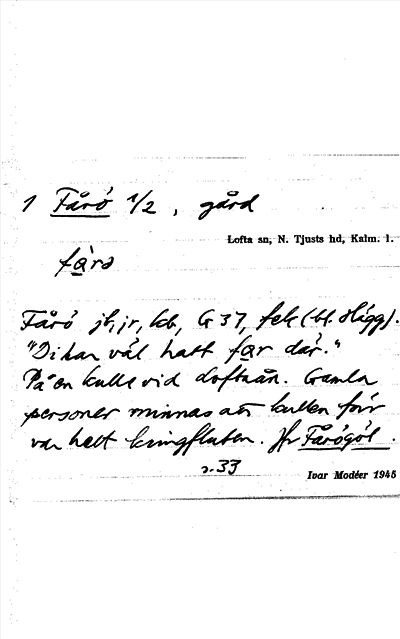 1 Fårö 1/2, gård
Lofta sn, N. Tjusts hd, Kalm. l.
få̀rə
Fårö jb, jr, kb, G 37, fek (bl. Hägg).
"Di har väl hatt får där."
På en kulle vid Loftaån. Gamla
personer minnas att kullen förr
var helt kringfluten. Jfr Fårögöl.
s. 33
Ivar Modéer 1945